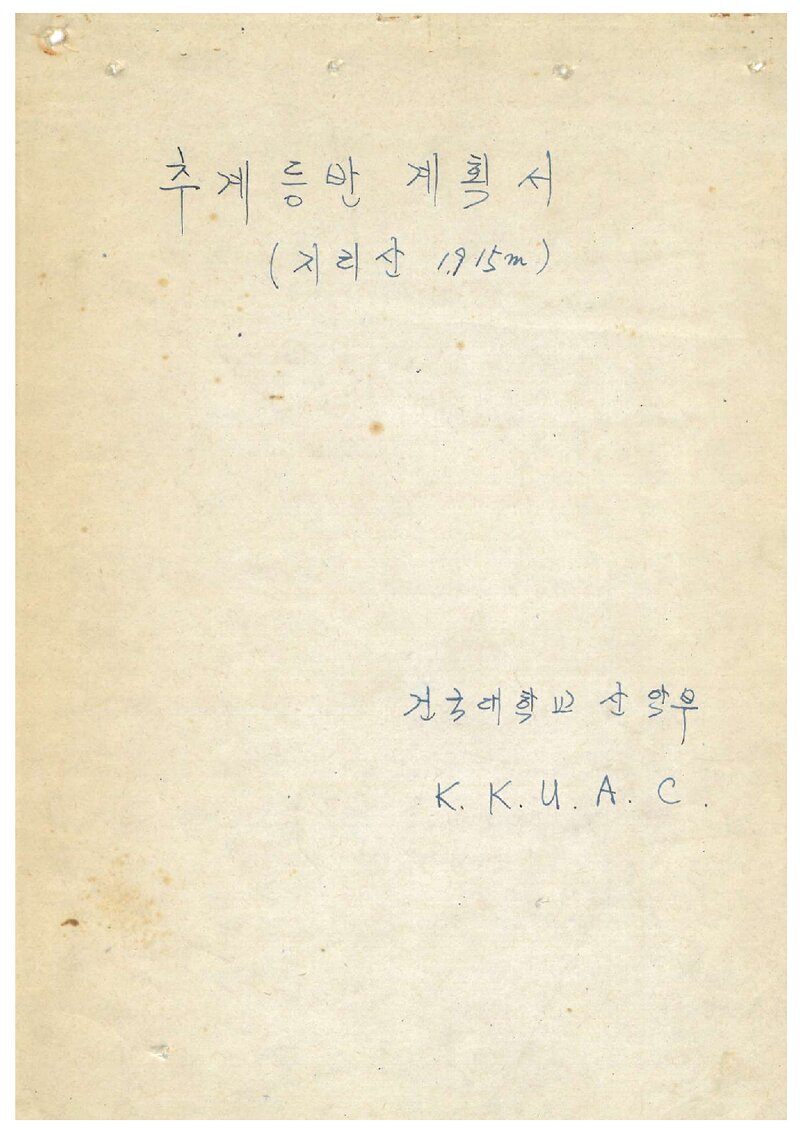 추계등반 계획서
(지리산 1,915m)
건국대학교 산악부
K. K. U. A. C.